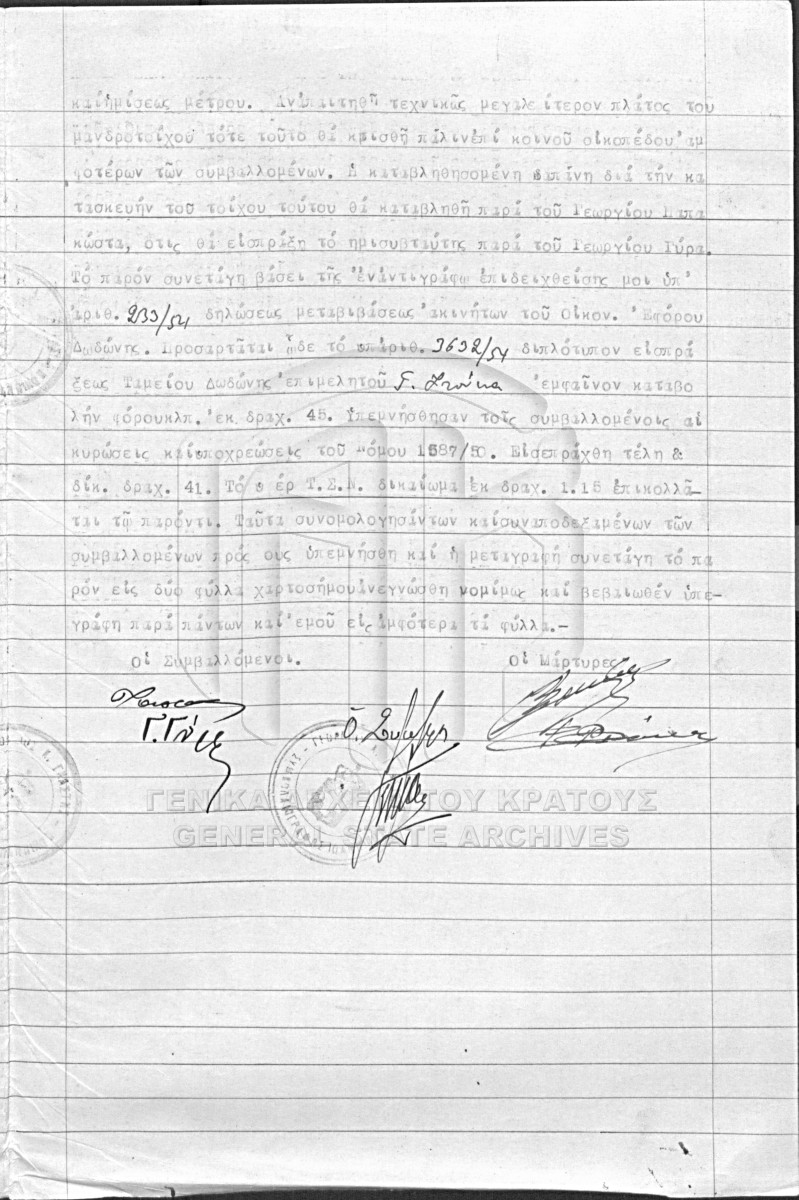 καιἡμίσεως μέτρου. Ἀνἀπαιτηθῇ τεχνικῶς μεγαλείτερον πλάτος τοῦ
μανδροτοίχου τότε τοῦτο θά κτισθῇ πάλινἐπί κοινοῦ οἰκοπέδου ἀμ
φοτέρων τῶν συμβαλλομένων. Ἡ καταβληθησομένη δαπάνη διά τήν κα
τασκευήν τοῦ τοίχου τούτου θά καταβληθῇ παρά τοῦ Γεωργίου Παπα
κώστα, ὅτις θά εἰσπράξῃ τό ἡμισυαὐτῆς παρά τοῦ Γεωργίου Γύρα.
Τό παρόν συνετάγη βάσει τῆς ἐνἀντιγράφῳ ἐπιδειχθείσης μοι ὑπ'
ἀριθ. 233/54 δηλώσεως μεταβιβάσεως ἀκινήτων τοῦ Οἰκον. Ἐφόρου
Δωδώνης. Προσαρτᾶται ὧδε τό ὑπἀριθ. 3632/54 διπλότυπον εἰσπρά
ξεως Ταμείου Δωδώνης ἐπιμελητοῦ Γ. ἐμφαῖνον καταβο
λήν φόρουκλπ. ἐκ δραχ. 45. Ὑπεμνήσθησαν τοῖς συμβαλλομένοις αἱ
κυρώσεις καιὑποχρεώσεις τοῦ Νόμου 1587/50. Εἰσεπράχθη τέλη &
δικ. δραχ. 41. Τό ὑπέρ Τ.Σ.Ν. δικαίωμα ἐκ δραχ. 1.15 ἐπικολλᾶ-
ται τῷ παρόντι. Ταῦτα συνομολογησάντων καίσυναποδεξαμένων τῶν
συμβαλλομένων πρός ους ὑπεμνήσθη καί ἡ μεταγραφή συνετάγη τό πα
ρόν εἰς δύο φύλλα χαρτοσήμουἀνεγνώσθη νομίμως καί βεβαιωθέν ὑπε-
γράφη παρά πάντων καί ἐμοῦ εἰς ἀμφότερα τά φύλλα.-
Οἱ Συμβαλλόμενοι. Οἱ Μάρτυρες
Γ. Γύρας
Ὁ Συμβ/φος
ΓΕΝΙΚΑ ΑΡΧΕΙΑ ΤΟΥ ΚΡΑΤΟΥΣ
GENERAL STATE ARCHIVES